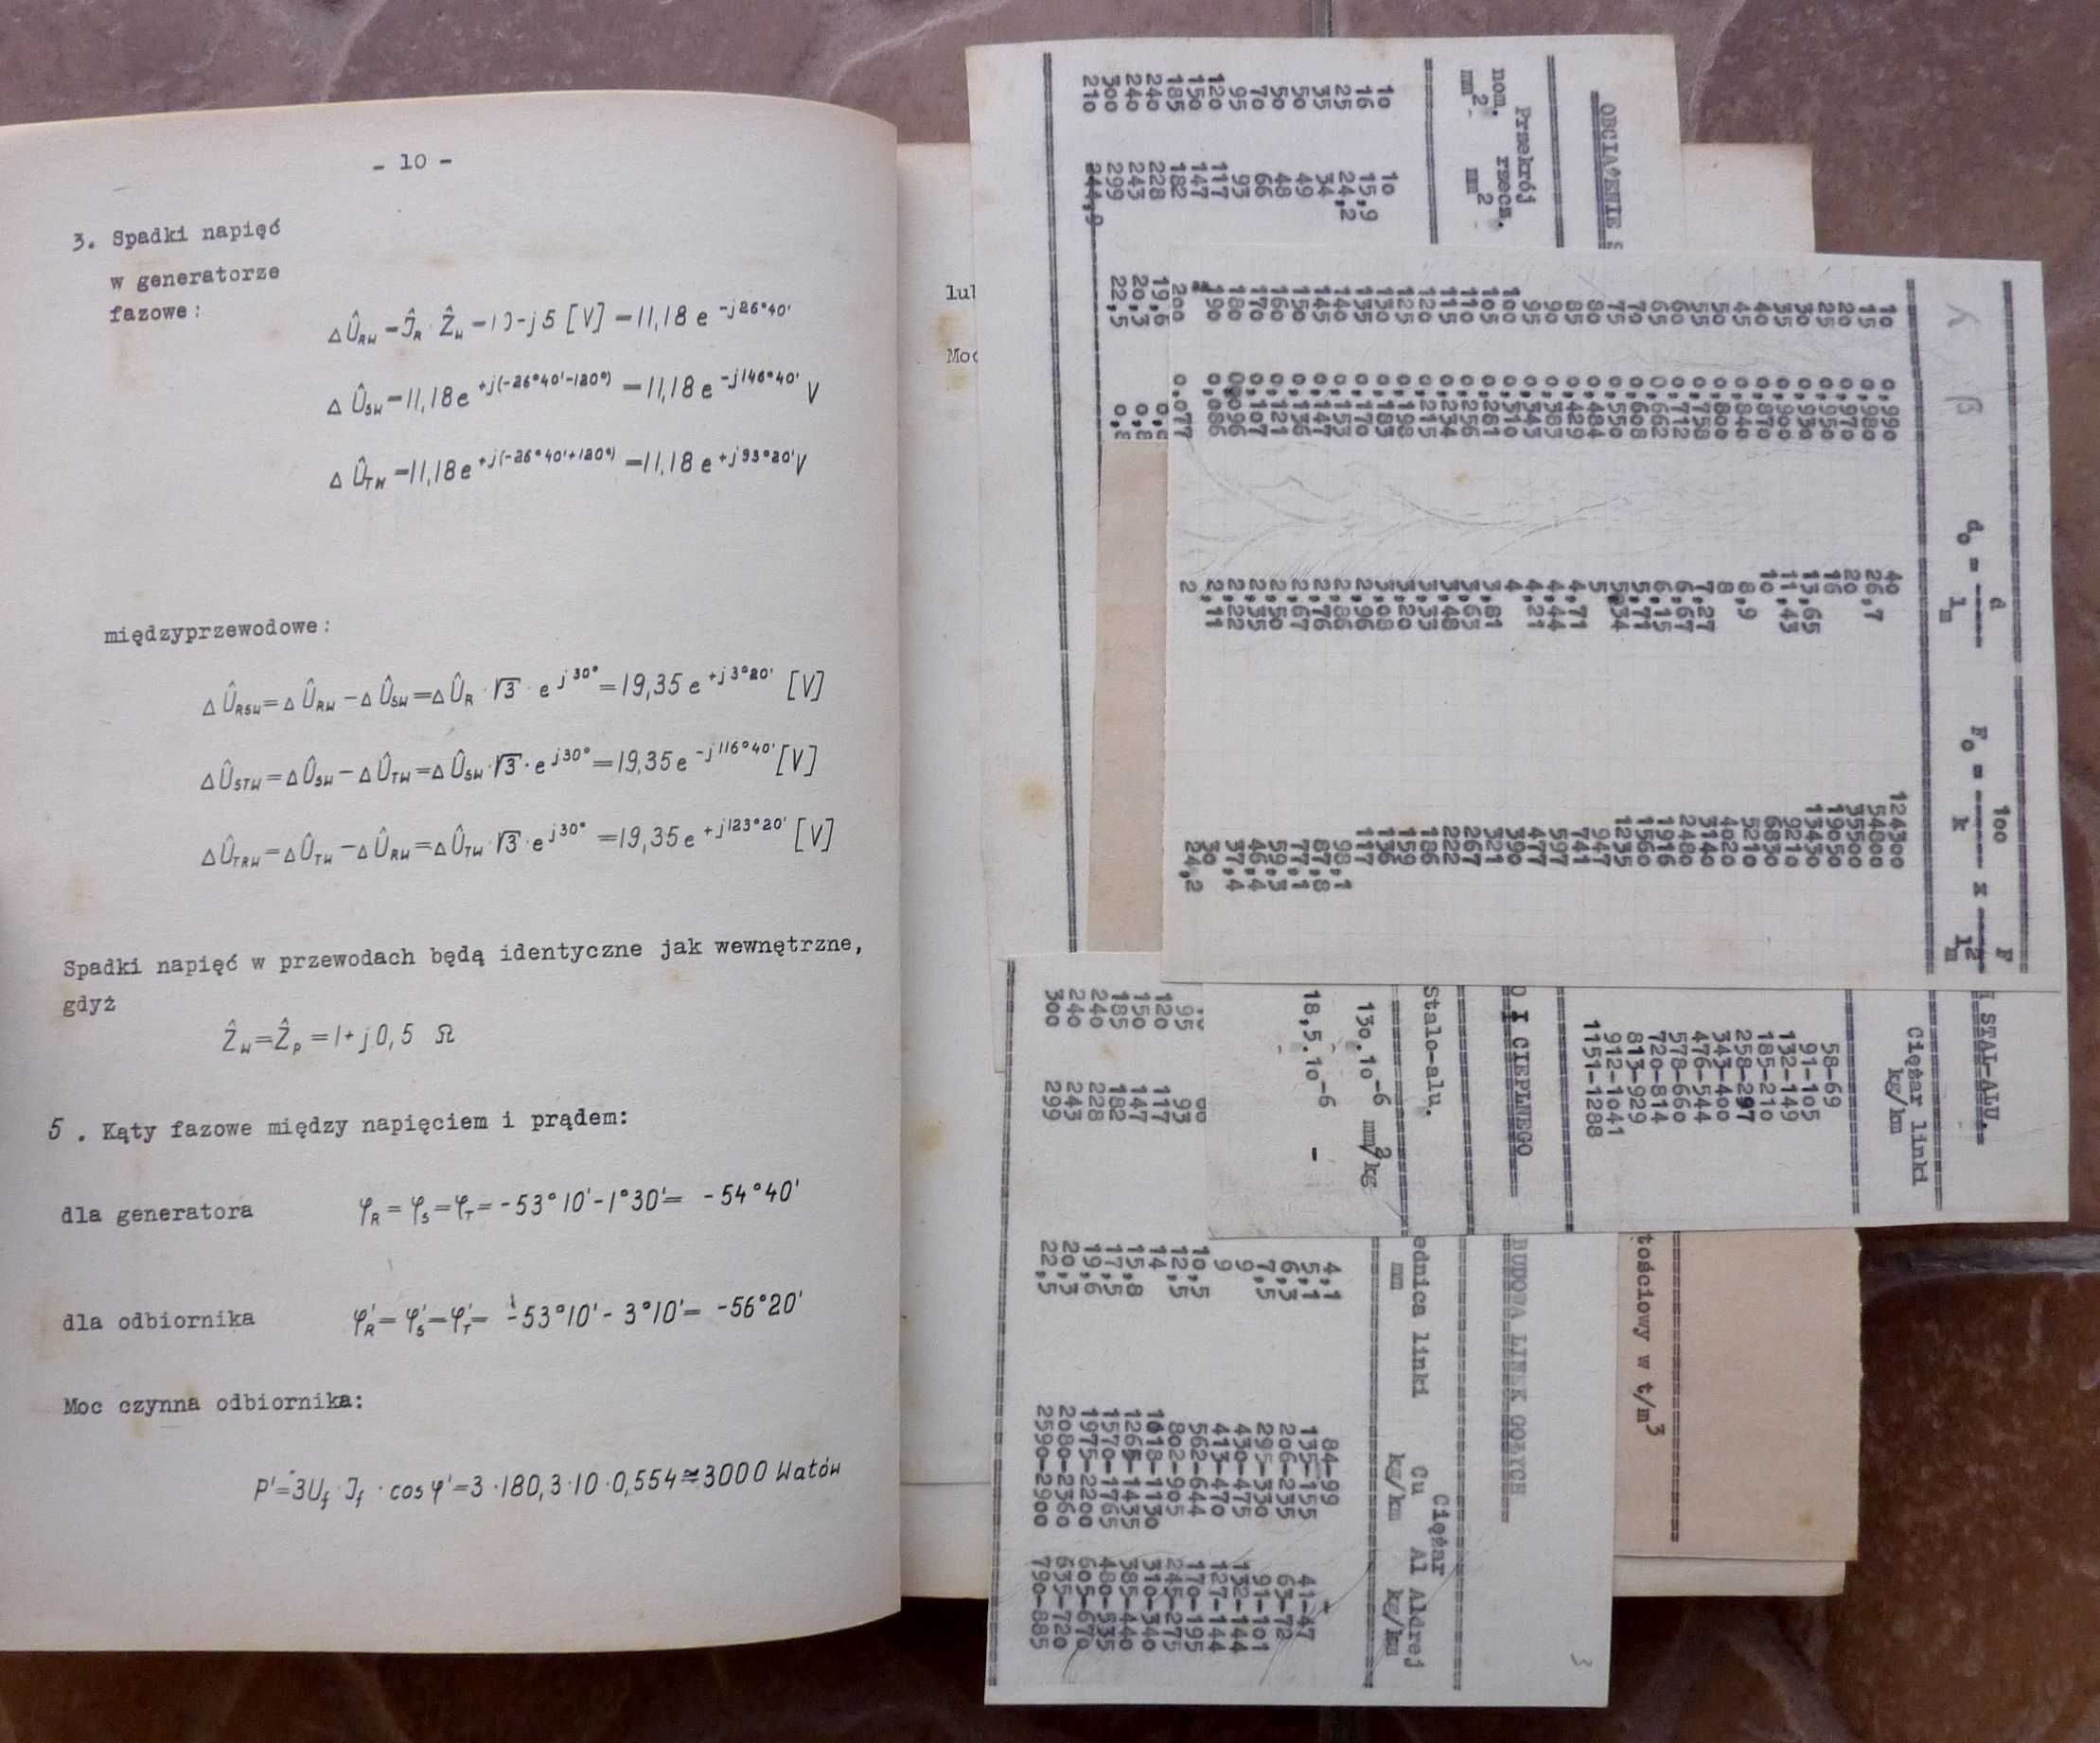 - 10 -
3. Spadki napięć
w generatorze
fazowe:
Δ Û_RW = Ĵ_R · Ẑ_W = 10-j5 [V] = 11,18 e^-j26°40'
Δ Û_SW = 11,18 e^+j(-26°40'-120°) = 11,18 e^-j146°40' V
Δ Û_TW = 11,18 e^+j(-26°40'+120°) = 11,18 e^+j93°20' V
międzyprzewodowe:
Δ Û_RSW = Δ Û_RW - Δ Û_SW = Δ Û_R · √3 · e^j30° = 19,35 e^+j3°20' [V]
Δ Û_STW = Δ Û_SW - Δ Û_TW = Δ Û_SW · √3 · e^j30° = 19,35 e^-j116°40' [V]
Δ Û_TRW = Δ Û_TW - Δ Û_RW = Δ Û_TW · √3 · e^j30° = 19,35 e^+j123°20' [V]
Spadki napięć w przewodach będą identyczne jak wewnętrzne,
gdyż
Ẑ_W = Ẑ_p = 1+j0,5 Ω
5. Kąty fazowe między napięciem i prądem:
dla generatora φ_R = φ_S = φ_T = -53°10'-1°30' = -54°40'
dla odbiornika φ'_R = φ'_S = φ'_T = -53°10' - 3°10' = -56°20'
Moc czynna odbiornika:
P' = 3U_f · J_f · cos φ' = 3 · 180,3 · 10 · 0,554 ≅ 3000 Watów
Przekrój
nom. rzecz.
mm² mm²
10 10
16 15,9
25 24,2
35 34
50 49
50 48
70 66
95 93
120 117
150 147
185 182
240 228 19,6
240 243 20,3
300 299 22,5
210 244,9
λ β d₀ = d / l_m F₀ = 100 / k x F / l²_m
10 0,990 40 124300
15 0,980 26,7 54800
20 0,970 20 35500
25 0,950 16 19050
30 0,930 13,65 13430
35 0,900 11,43 9210
40 0,870 10 6830
45 0,840 8,9 5210
50 0,800 8 4020
55 0,758 7,27 3140
60 0,712 6,67 2480
65 0,662 6,15 1916
70 0,608 5,71 1560
75 0,550 5,34 1235
80 0,484 5 947
85 0,429 4,71 741
90 0,383 4,44 597
95 0,345 4,21 477
100 0,310 4 390
105 0,281 3,81 321
110 0,256 3,63 267
115 0,234 3,48 222
120 0,215 3,33 186
125 0,198 3,20 159
130 0,183 3,08 136
135 0,170 2,96 117
140 0,153 2,86 98,1
145 0,147 2,76 87,8
150 0,136 2,67 77,1
160 0,121 2,50 59,3
170 0,107 2,35 46,4
180 0,096 2,22 37,4
190 0,086 2,11 30
200 0,077 2 24,2
I STAL-ALU.
Ciężar linki
kg/km
58-69
91-105
132-149
185-210
258-297
343-400
476-544
578-660
720-814
813-929
912-1041
1151-1288
O I CIEPLNEGO
Stalo-alu.
130.10⁻⁶ mm²/kg
18,5.10⁻⁶ -
tościowy w t/m³
BUDOWA LINEK GOŁYCH
Ciężar
ednica linki Cu Al Aldrej
mm kg/km kg/km
4,1 84-99 -
5,1 135-155 41-47
6,3 206-235 63-72
7,5 295-330 91-101
9 430-475 132-144
9 413-470 127-144
10,5 562-644 170-195
95 93 12,5 802-905 245-275
120 117 14 1018-1130 310-340
150 147 15,8 1265-1435 385-440
185 182 17,5 1570-1765 480-535
240 228 19,6 1975-2200 605-670
240 243 20,3 2080-2360 635-720
300 299 22,5 2590-2900 790-885
3